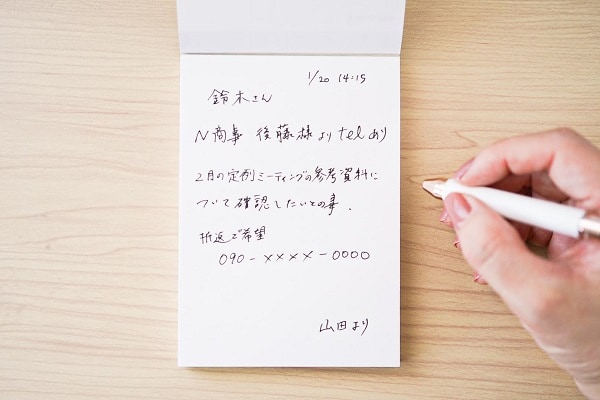 1/20 14:15
鈴木さん
N商事 後藤様より telあり
2月の定例ミーティングの参考資料に
ついて確認したいとの事.
折返しご希望
090-××××-0000
山田より